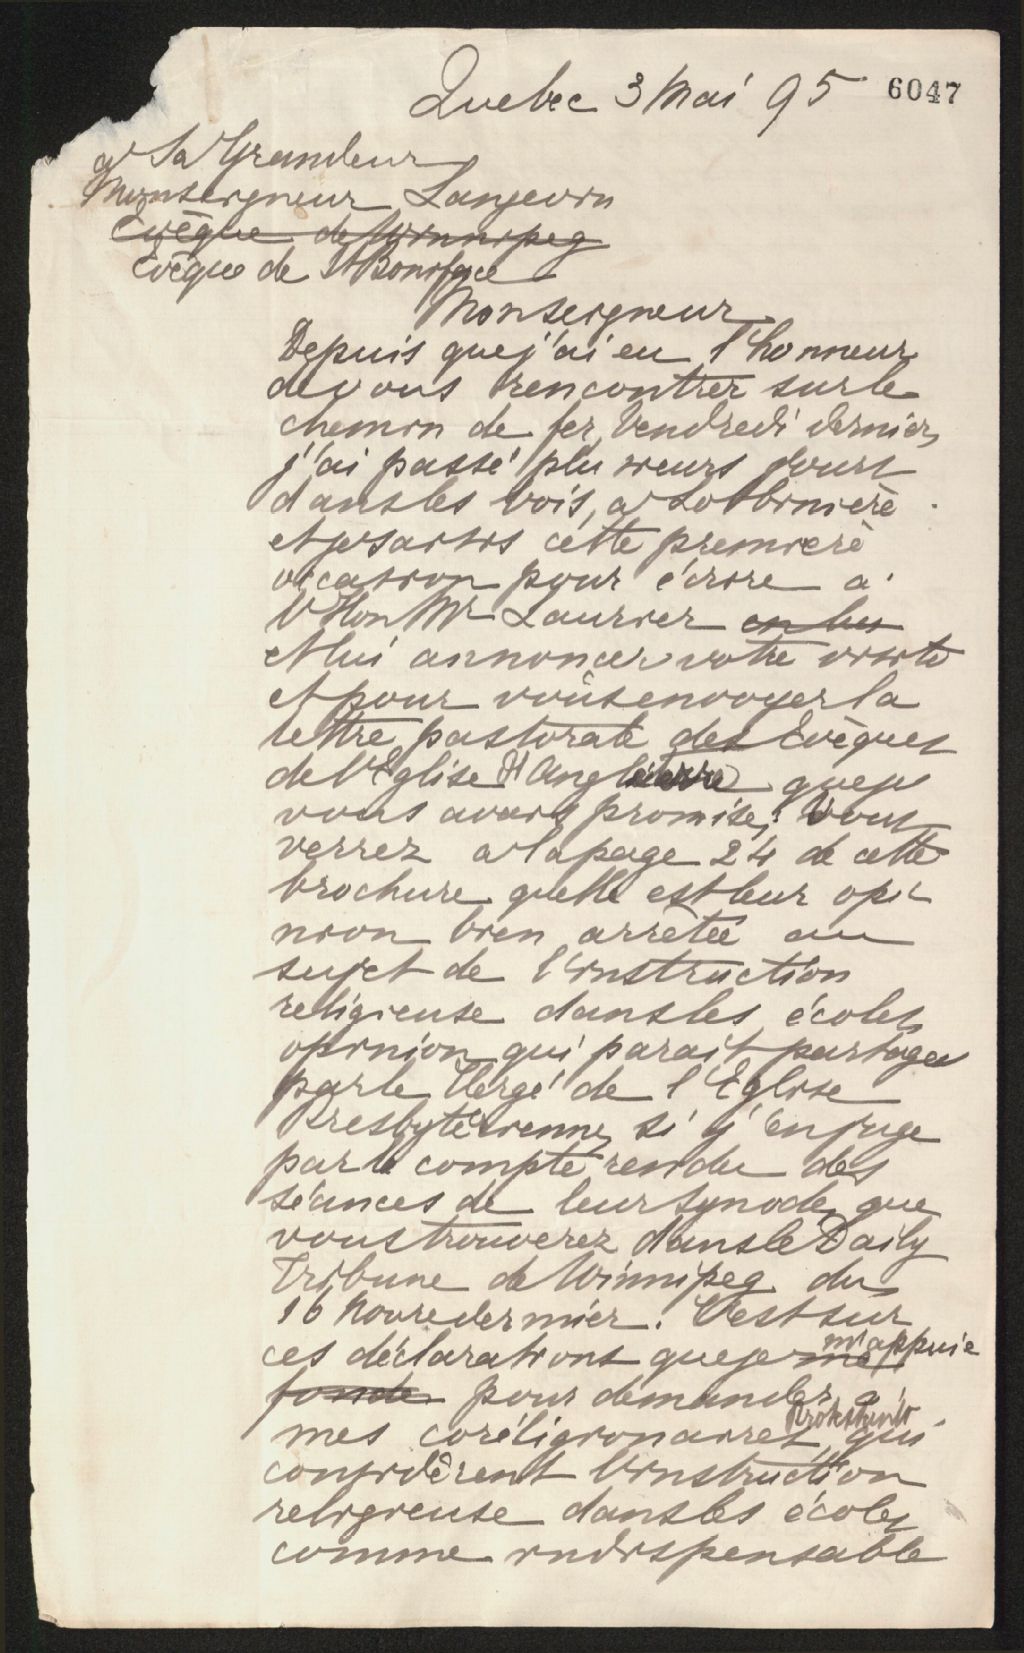 Quebec 3 Mai 95 6047
a Sa Grandeur
Monseigneur Langevin
Evêque de Winnipeg
Evêque de St Boniface
Monseigneur
Depuis que j'ai eu l'honneur
de vous rencontrer sur le
chemin de fer, Vendredi dernier,
j'ai passé plusieurs jours
dans les bois, a Lotbinière
et je saisis cette première
occasion pour écrire a
l'Hon Mr Laurier en lui
et lui annoncer votre visite
et pour vous envoyer la
lettre pastorale des Evèques
de l'Eglise d'Angleterre que je
vous avais promise; Vous
verrez a la page 24 de cette
brochure quelle est leur opi
nion bien arrêtée au
sujet de l'instruction
religieuse dans les écoles,
opinion qui parait partagée
par le Clergé de l'Eglise
Presbytérienne, si j'en juge
par le compte rendu des
séances de leur synode, que
vous trouverez dans le Daily
Tribune de Winnipeg du
16 Novre dernier. C'est sur
ces déclarations que je me m'appuie
fonde pour demander a
mes coréligionaires Protestants qui
considèrent l'instruction
religieuse dans les écoles
comme indispensable